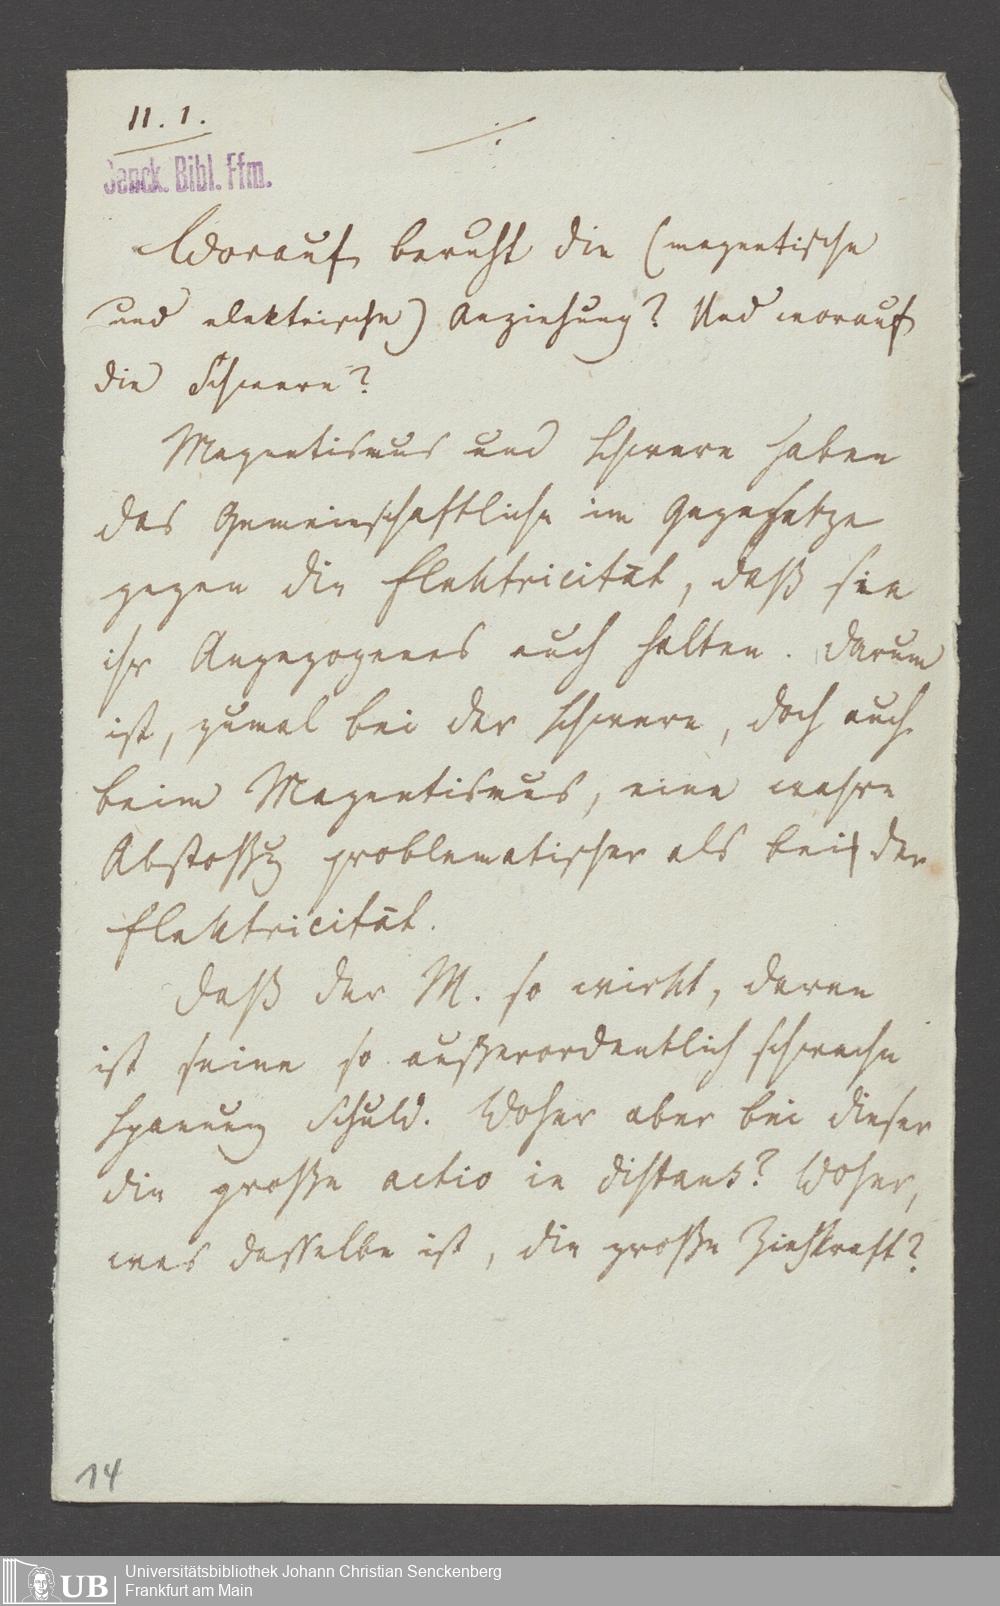 II. 1.
Senck. Bibl. Ffm.
Worauf beruht die (magnetische
und elektrische) Anziehung? Und worauf
die Schwere?
Magnetismus und Schwere haben
das Gemeinschaftliche im Gegensatze
gegen die Elektricität, daß sie
ihr Angezogenes auch halten. Darum
ist, zumal bei der Schwere, doch auch
beim Magnetismus, eine wahre
Abstoßg problematischer als bei der
Elektricität.
Daß der M. so wirkt, daran
ist seine so außerordentlich schwache
Spannung Schuld. Woher aber bei dieser
die große actio in distans? Woher,
was dasselbe ist, die große Ziehkraft?
14
UB
Universitätsbibliothek Johann Christian Senckenberg
Frankfurt am Main